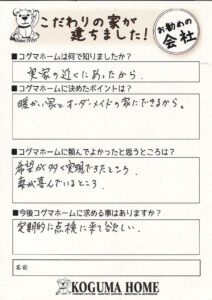 こだわりの家が
建ちました!
お勧めの
会社
■コグマホームは何で知りましたか?
実家の近くにあったから.
■コグマホームに決めたポイントは?
暖かい家とオーダーメイドの家にできるから。
■コグマホームに頼んでよかったと思うところは?
希望が多く実現できたところ
妻が喜んでいるところ.
■今後コグマホームに求める事はありますか?
定期的に点検に来て欲しい.
名前
KOGUMA HOME